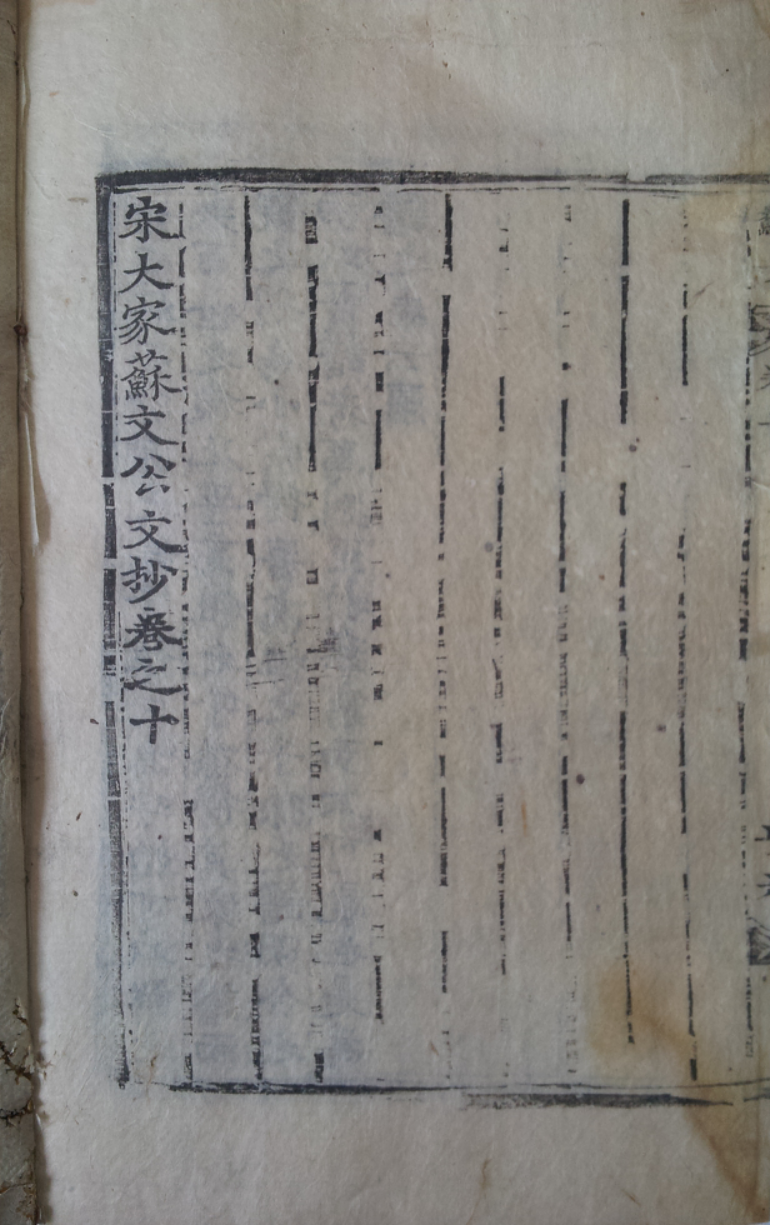 宋大家蘇文公文抄卷之十